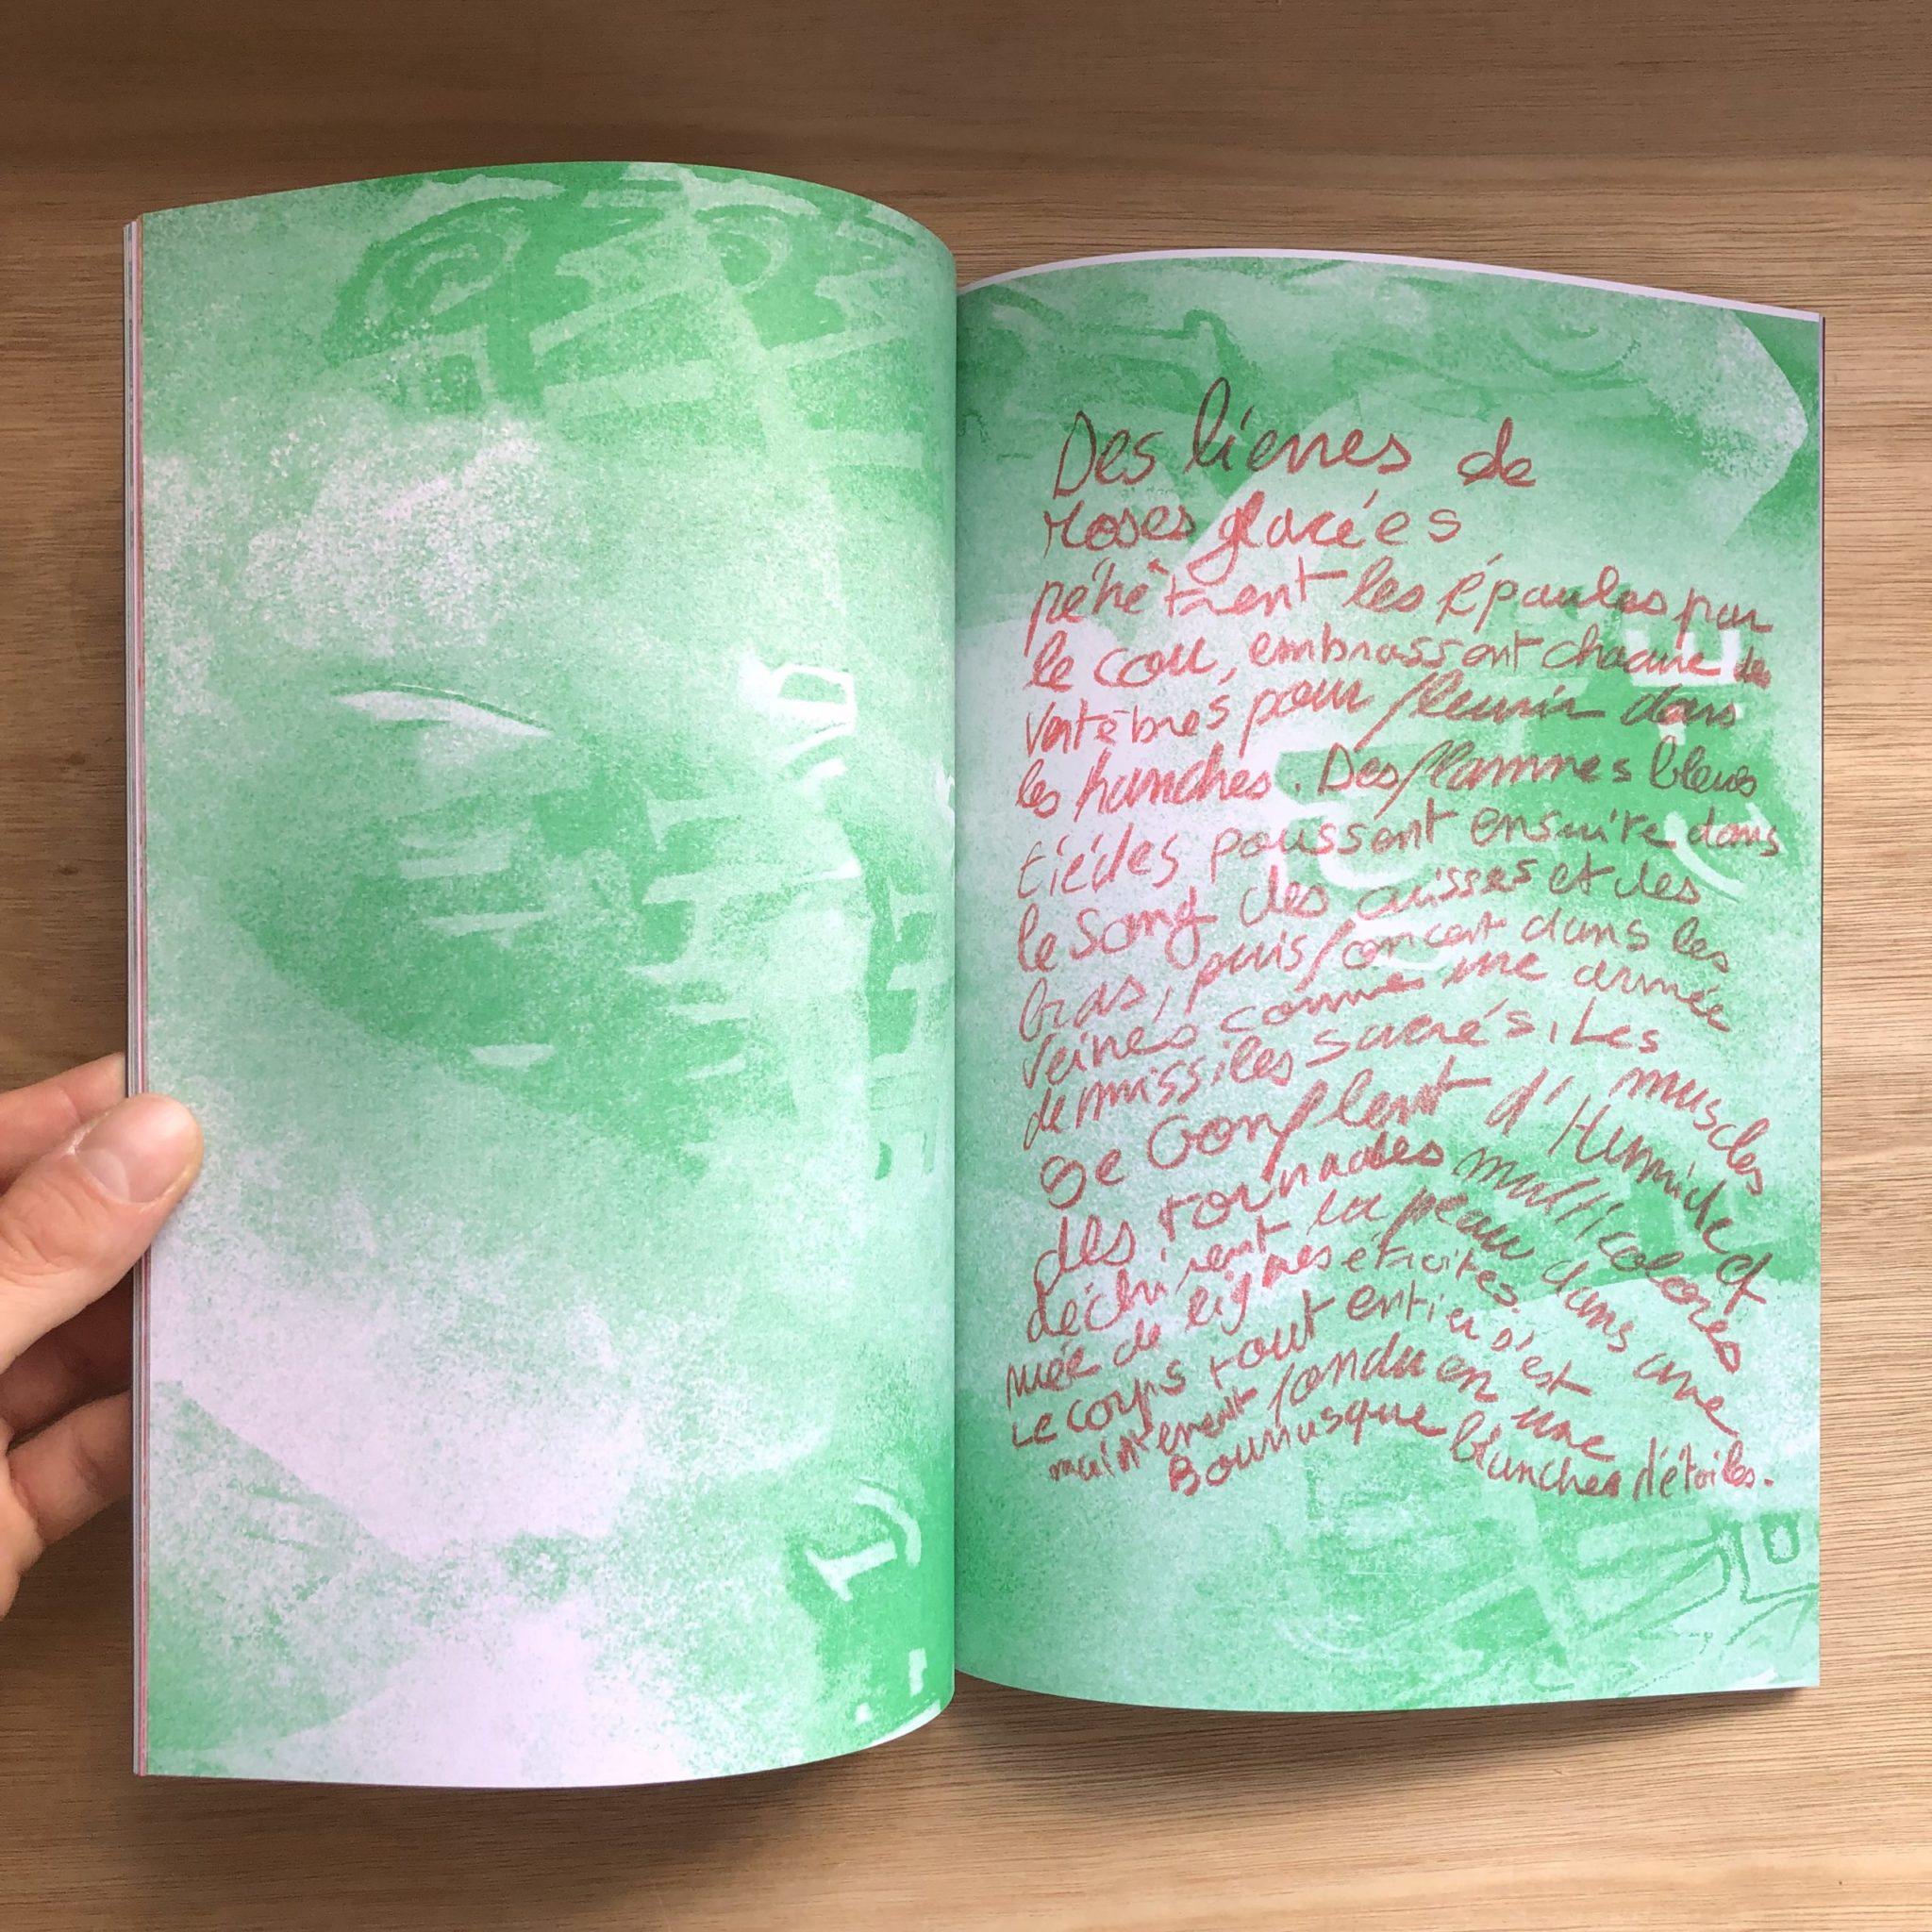 Des lierres de
roses glacées
pénètrent les épaules par
le cou, embrassent chacune des
vertèbres pour fleurir dans
les hanches. Des flammes bleues
tiédes poussent ensuite dans
le sang des cuisses et des
bras, puis foncent dans les
veines comme une armée
de missiles sacrés. Les muscles
se gonflent d'Humide et
des tornades multicolores
déchirent la peau dans une
nuée de lignes étroites.
Le corps tout entier s'est
maintenant fondu en une
Bourrasque blanches d'étoiles.